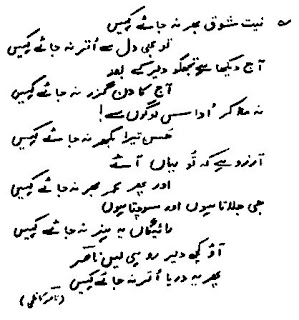 نیت شوق بھر نہ جائے کہیں
تو بھی دل سے اُتر نہ جائے کہیں
آج دیکھا ہے تجھکو دیر کے بعد
آج کا دن گزر نہ جائے کہیں
نہ ملا کر اُداس لوگوں سے!
حُسن تیرا بکھر نہ جائے کہیں
آرزو ہے کہ تُو یہاں آئے
اور پھر عمر بھر نہ جائے کہیں
جی جلاتا ہوں اور سوچتا ہوں
رائیگاں یہ ہنر نہ جائے کہیں
آؤ کچھ دیر رو ہی لیں ناصر
پھر یہ دریا اُتر نہ جائے کہیں
(ناصر کاظمی)